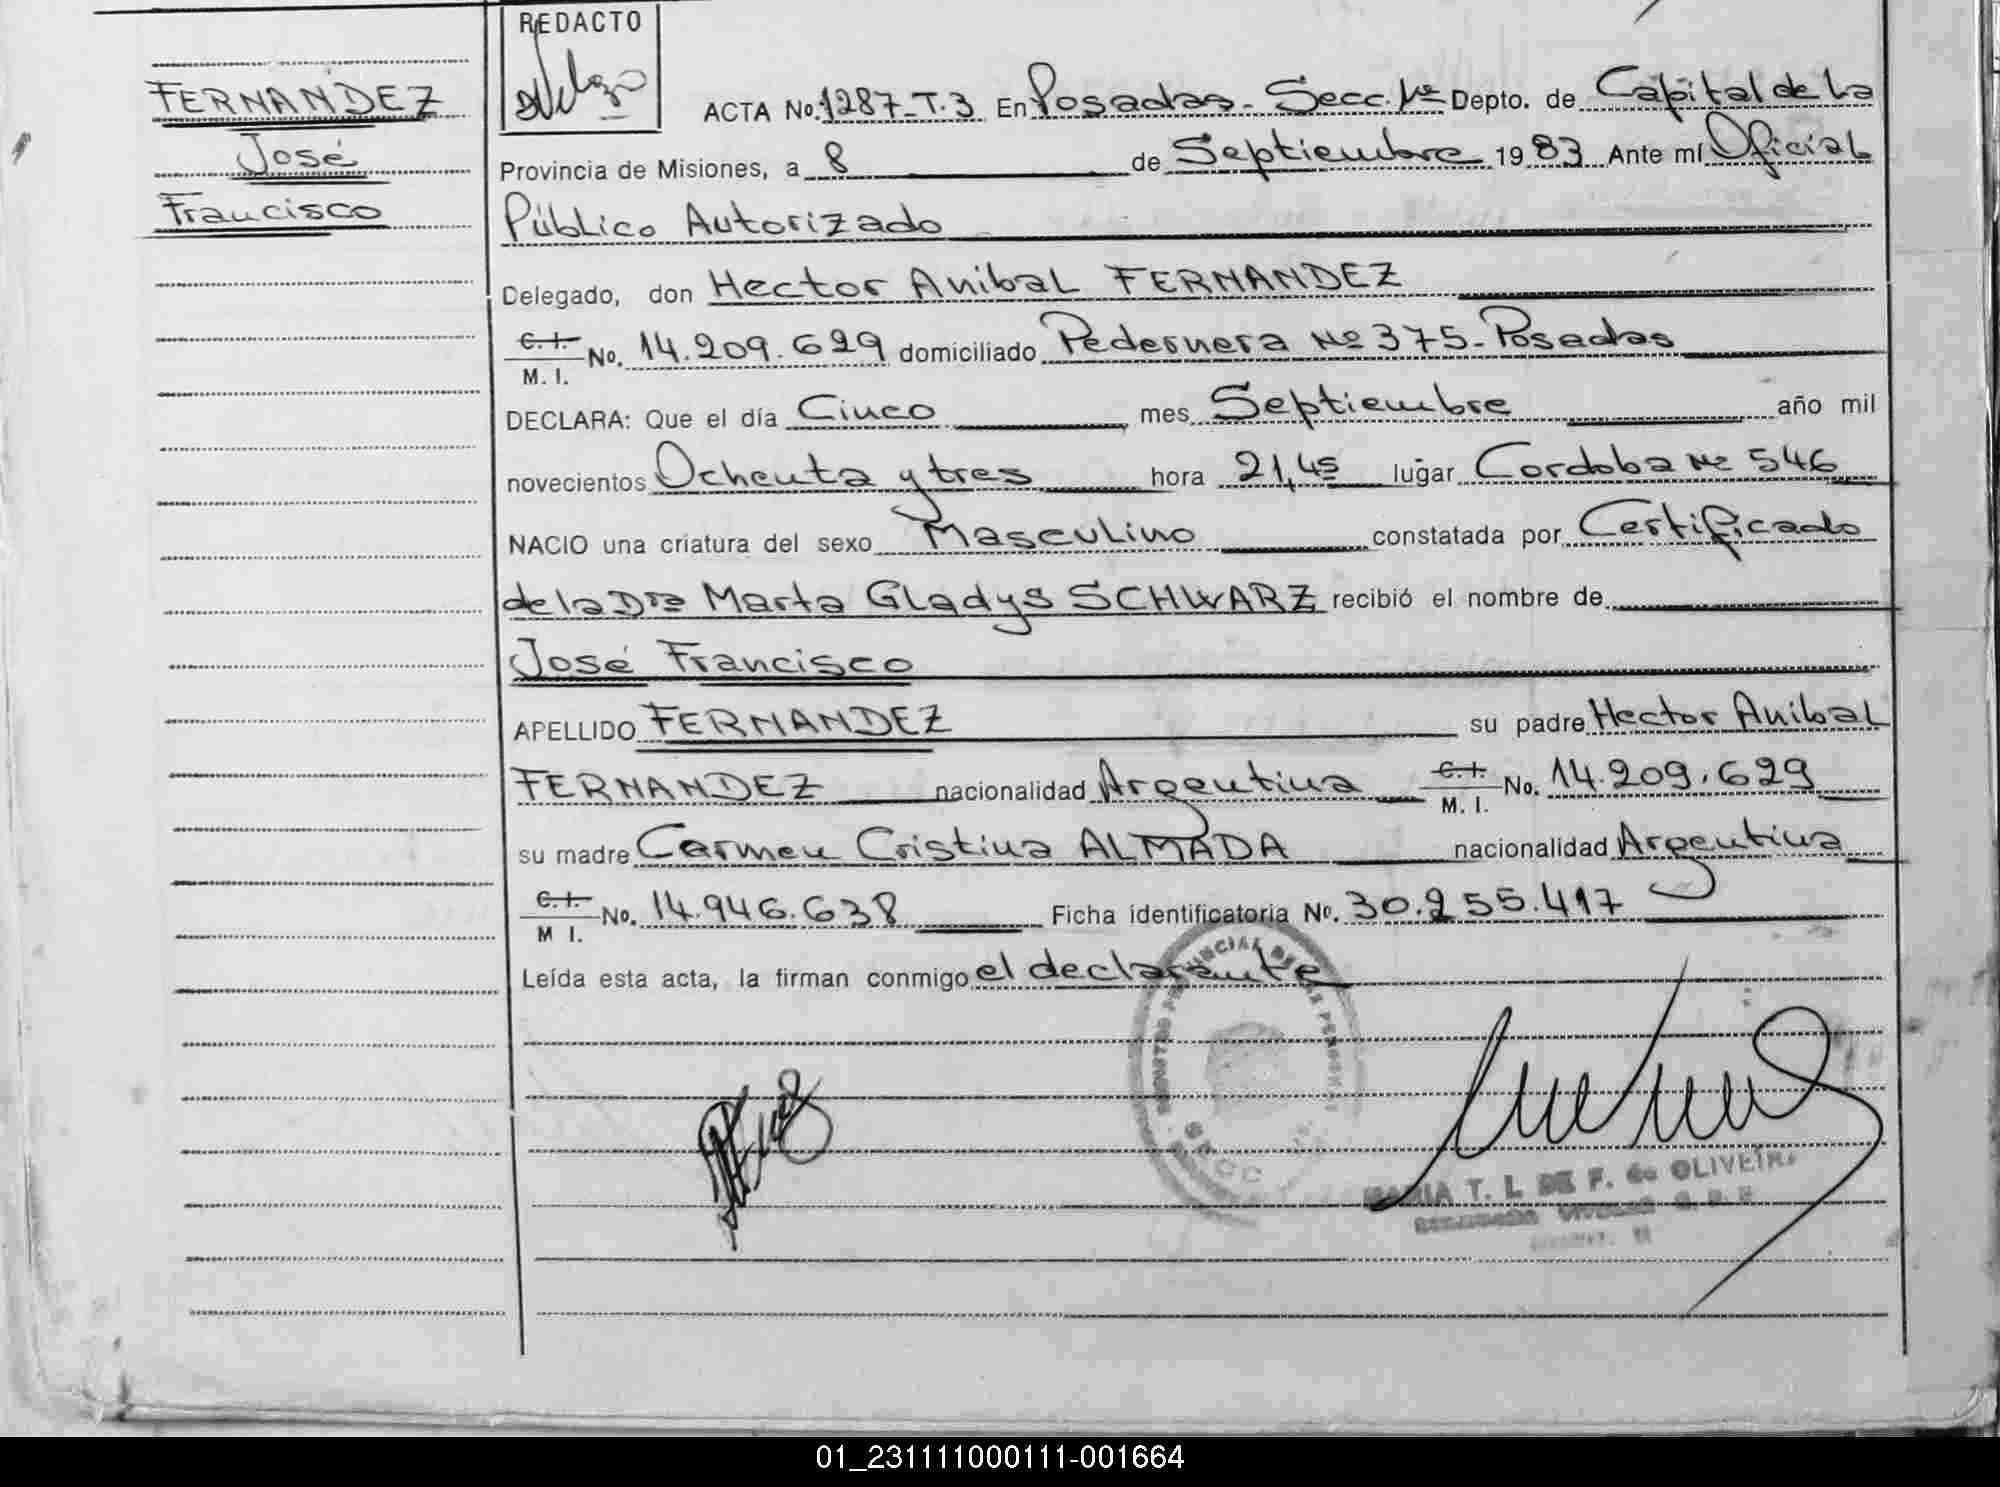 REDACTO
FERNANDEZ
José
Francisco
ACTA No. 1287-T.3 En Posadas - Secc. 1ra Depto. de Capital de la
Provincia de Misiones, a 8 de Septiembre 1983 Ante mí Oficial
Público Autorizado
Delegado, don Hector Anibal FERNANDEZ
C. I. No. 14.209.629 domiciliado Pedernera Nº 375 - Posadas
M. I.
DECLARA: Que el día Cinco mes Septiembre año mil
novecientos Ochenta y tres hora 21,45 lugar Cordoba Nº 546
NACIO una criatura del sexo Masculino constatada por Certificado
de la Dra Marta Gladys SCHWARZ recibió el nombre de
José Francisco
APELLIDO FERNANDEZ su padre Hector Anibal
FERNANDEZ nacionalidad Argentina C. I. No. 14.209.629
M. I.
su madre Carmen Cristina ALMADA nacionalidad Argentina
C. I. No. 14.946.638 Ficha identificatoria No. 30.255.417
M I.
Leída esta acta, la firman conmigo el declarante
REGISTRO PROVINCIAL DE LAS PERSONAS
SECC
MARIA T. L. DE F. de OLIVEIRA
01_231111000111-001664